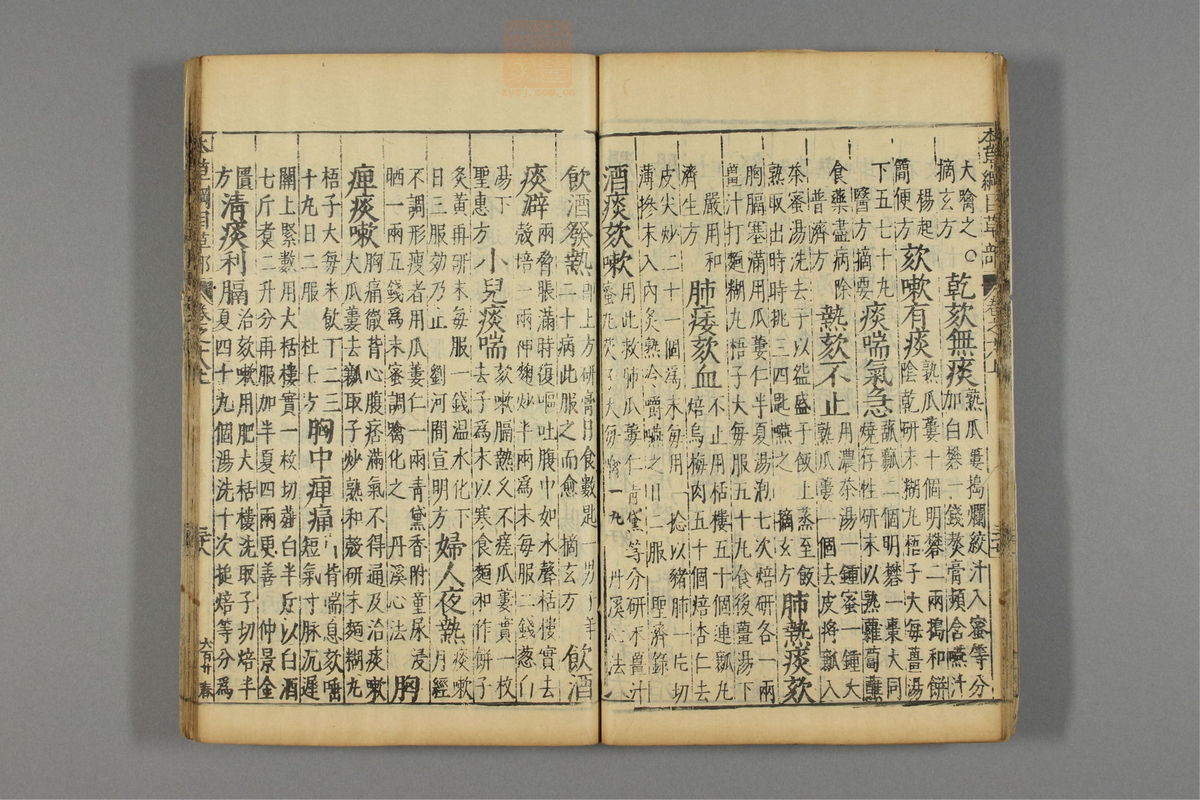 本草綱目草部
大噙之。
摘玄方
乾欬無痰
熟瓜蔞搗爛絞汁入蜜等分
加白礬一錢熬膏頻含嚥汁
楊起
簡便方
欬嗽有痰
熟瓜蔞十個明礬二兩搗和餅
陰乾研末糊丸梧子大每薑湯
下五七十丸
醫方摘要
痰喘氣急
瓤二個明礬一棗大同
燒存性研末以熟蘿蔔蘸
食藥盡病除
普濟方
熱欬不止
用濃茶湯一鍾蜜一鍾大
熟瓜蔞一個去皮將瓤入
茶蜜湯洗去子以盌盛于飯上蒸至飯
熟取出時時挑三四匙嚥之 摘玄方
肺熱痰欬
胸膈塞滿用瓜蔞仁半夏湯泡七次焙研各一兩
薑汁打麵糊丸梧子大每服五十丸食後薑湯下
嚴用和
濟生方
肺痿欬血
不止用栝樓五十個連瓤
焙烏梅肉五十個焙杏仁去
皮尖炒二十一個爲末每用一捻以豬肺一片切
薄摻末入內炙熟冷嚼嚥之日二服 聖濟錄
酒痰欬嗽
用此救肺瓜蔞仁青黛等分研末薑汁
蜜丸芡子大每噙一丸 丹溪心法
飲酒發熱
即上方研膏日食數匙一男子年
二十病此服之而愈 摘玄方
飲酒
痰癖
兩脅脹滿時復嘔吐腹中如水聲栝樓實去
殼焙一兩神麴炒半兩爲末每服二錢葱白
湯下
聖惠方
小兒痰喘
欬嗽膈熱久不瘥瓜蔞實一枚
去子爲末以寒食麵和作餅子
炙黃再研末每服一錢温水化下
日三服効乃止 劉河間宣明方
婦人夜熱
痰嗽
月經
不調形瘦者用瓜蔞仁一兩青黛香附童尿浸
晒一兩五錢爲末蜜調噙化之 丹溪心法
胸
痺痰嗽
胸痛徹背心腹痞滿氣不得通及治痰嗽
大瓜蔞去瓤取子炒熟和殼研末麵糊丸
梧子大每米飲丁二三
十九日二服 杜壬方
胸中痺痛
引背喘息欬唾
短氣寸脉沉遲
關上緊數用大栝樓實一枚切薤白半斤以白酒
七斤煮二升分再服加半夏四兩更善 仲景金
匱
方
清痰利膈
治欬嗽用肥大栝樓洗取子切焙半
夏四十九個湯洗十次搥焙等分爲
本草綱目草部